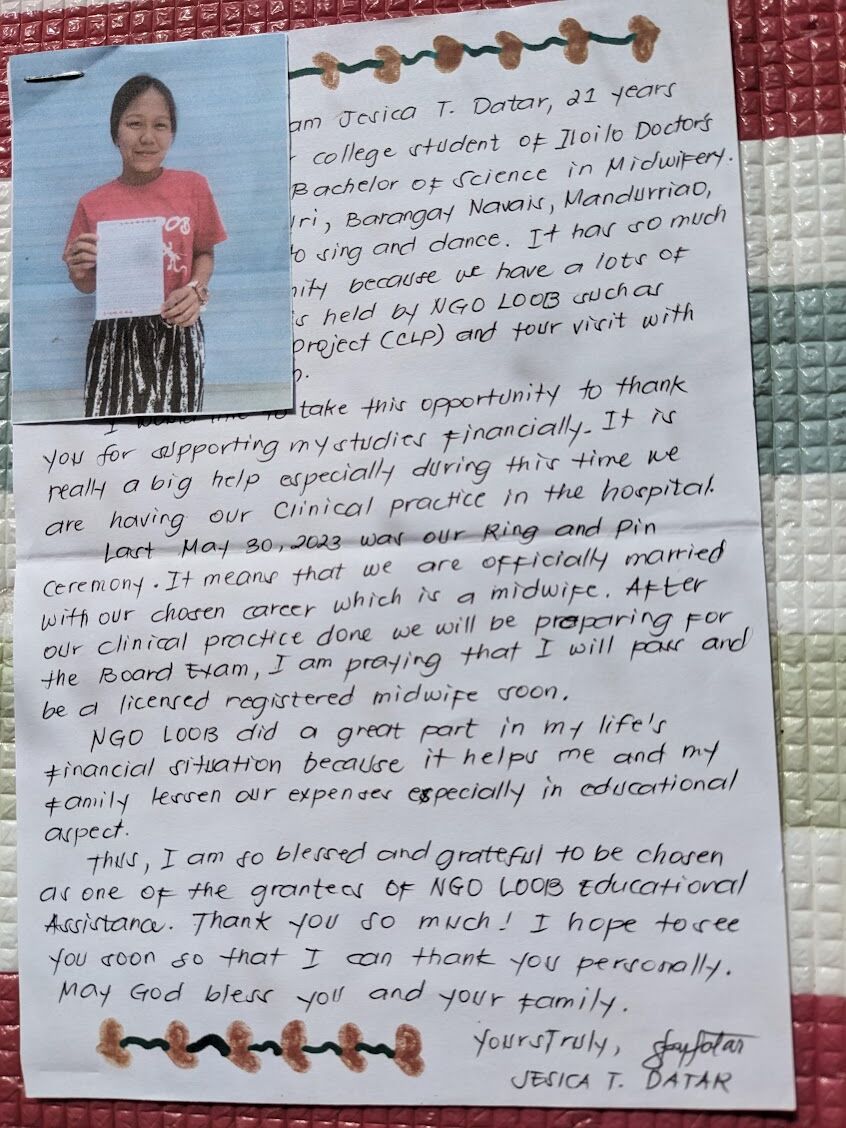 am Jesica T. Datar, 21 years
college student of Iloilo Doctor's
Bachelor of Science in Midwifery.
iri, Barangay Navais, Mandurriao,
to sing and dance. It has so much
nity because we have a lots of
s held by NGO LOOB such as
project (CLP) and tour visit with
I would like to take this opportunity to thank
you for supporting my studies financially. It is
really a big help especially during this time we
are having our Clinical practice in the hospital.
Last May 30, 2023 was our Ring and Pin
Ceremony. It means that we are officially married
with our chosen career which is a midwife. After
our clinical practice done we will be preparing for
the Board Exam, I am praying that I will pass and
be a licensed registered midwife soon.
NGO LOOB did a great part in my life's
financial situation because it helps me and my
family lessen our expenses especially in educational
aspect.
Thus, I am so blessed and grateful to be chosen
as one of the grantees of NGO LOOB Educational
Assistance. Thank you so much! I hope to see
you soon so that I can thank you personally.
May God bless you and your family.
Yours Truly,
JESICA T. DATAR